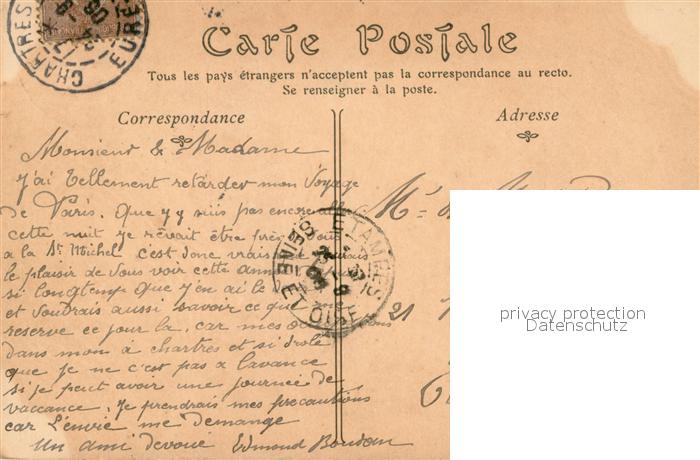 CHARTRES
EURE
Carte Postale
Tous les pays étrangers n'acceptent pas la correspondance au recto.
Se renseigner à la poste.
Correspondance
Adresse
Monsieur & Madame
J'ai tellement retarder mon Voyage
de Paris. Que y suis pas encore
cette nuit je revait être près
a la St Michel c'est donc vrais
le plaisir de Vous voir cette
si longtemp Que j'en ai le
et voudrais aussi savoir ce que
reserve ce jour la. car mes
dans mon à chartres et si drole
que je ne c'est pas a l'avance
si je peut avoir une journée de
vaccance. Je prendrais mes precautions
car L'envie me demange
Un ami devoué Edmond Boudon
ETAMPES
SEINE ET OISE
21
privacy protection
Datenschutz